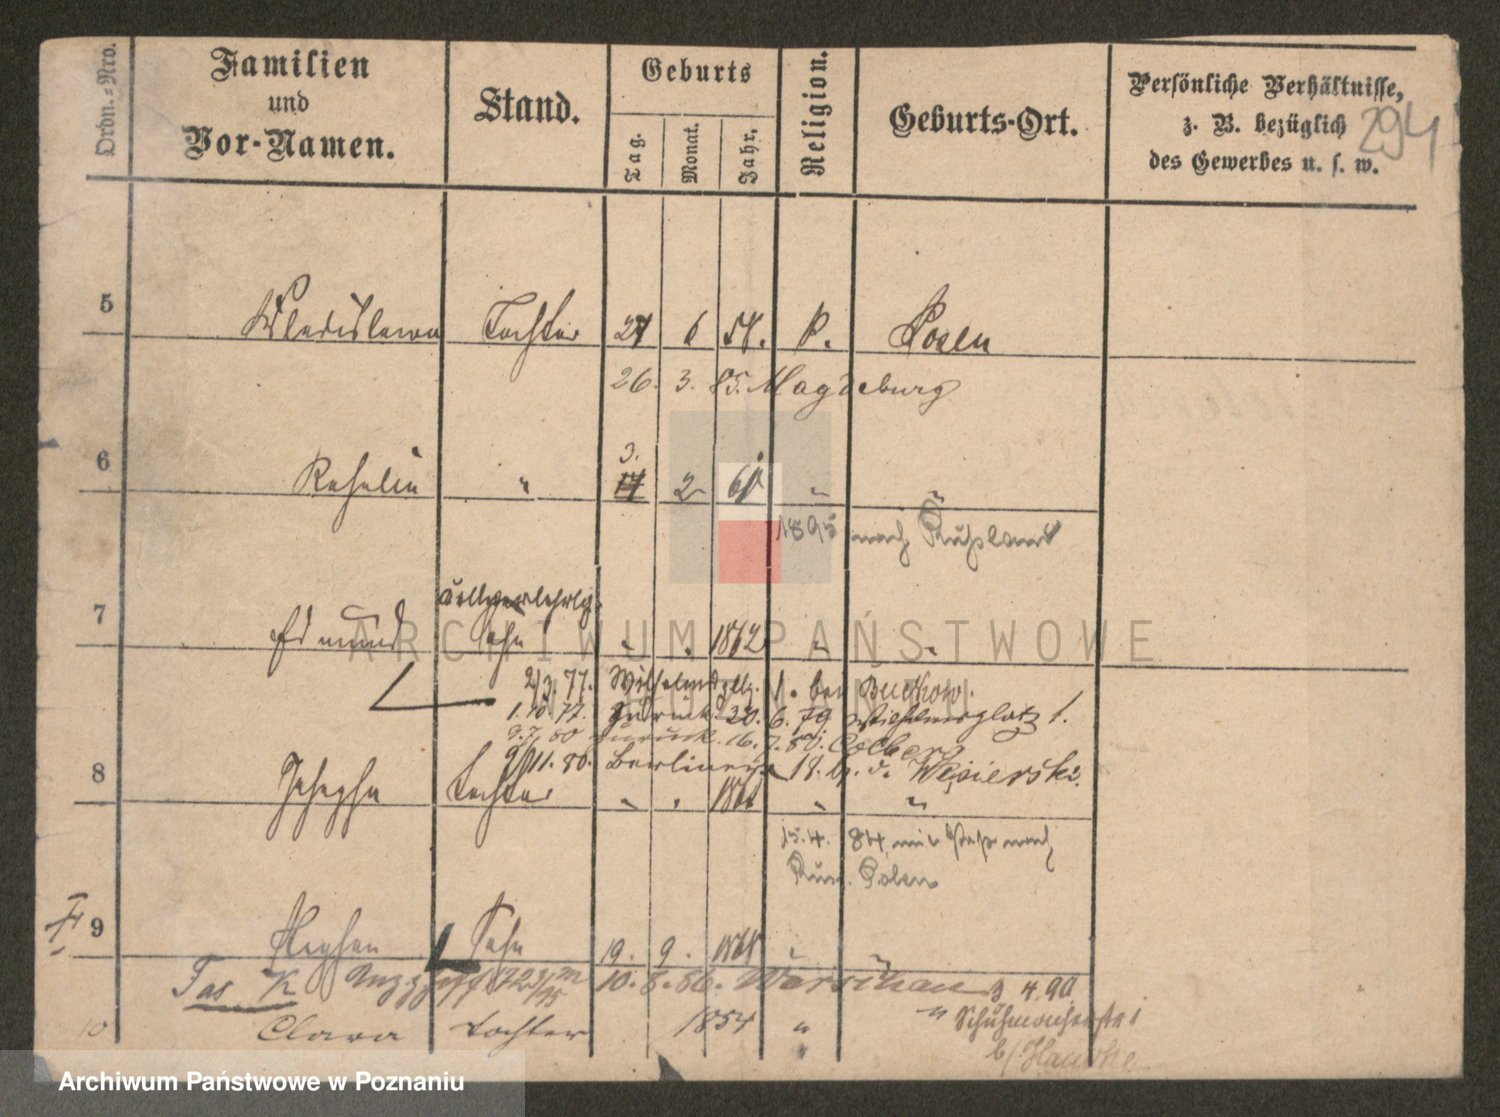 Ordn.-Nro.
Familien
und
Vor-Namen.
Stand.
Geburts
Tag.
Monat.
Jahr.
Religion.
Geburts-Ort.
Persönliche Verhältnisse,
z. B. bezüglich
des Gewerbes u. s. w.
294
5 Wladislawa Tochter 27 6 58. P. Posen
26. 3. 85. Magdeburg
3.
6 " 2 "
1895 nach Rußland
7 Edmund Sohn " " 1862 " "
2/3. 77. 1. bei Buckow.
1.10.77. Zurück. 20. 6. 79 Wilhelmsplatz 1.
9.7.80 zurück. 16. 7. 80. Colberg
9/11. 80. Berliner 18. b. v. Wesierski.
8 Josepha Tochter " " " "
15. 4. 84 mit nach
Russ. Polen
9 Stephan Sohn 19. 9. 1868 " "
10. 8. 86. Warschau 4 90
10 Clara Tochter 1854 " "
ARCHIWUM PAŃSTWOWE
W POZNANIU
Archiwum Państwowe w Poznaniu